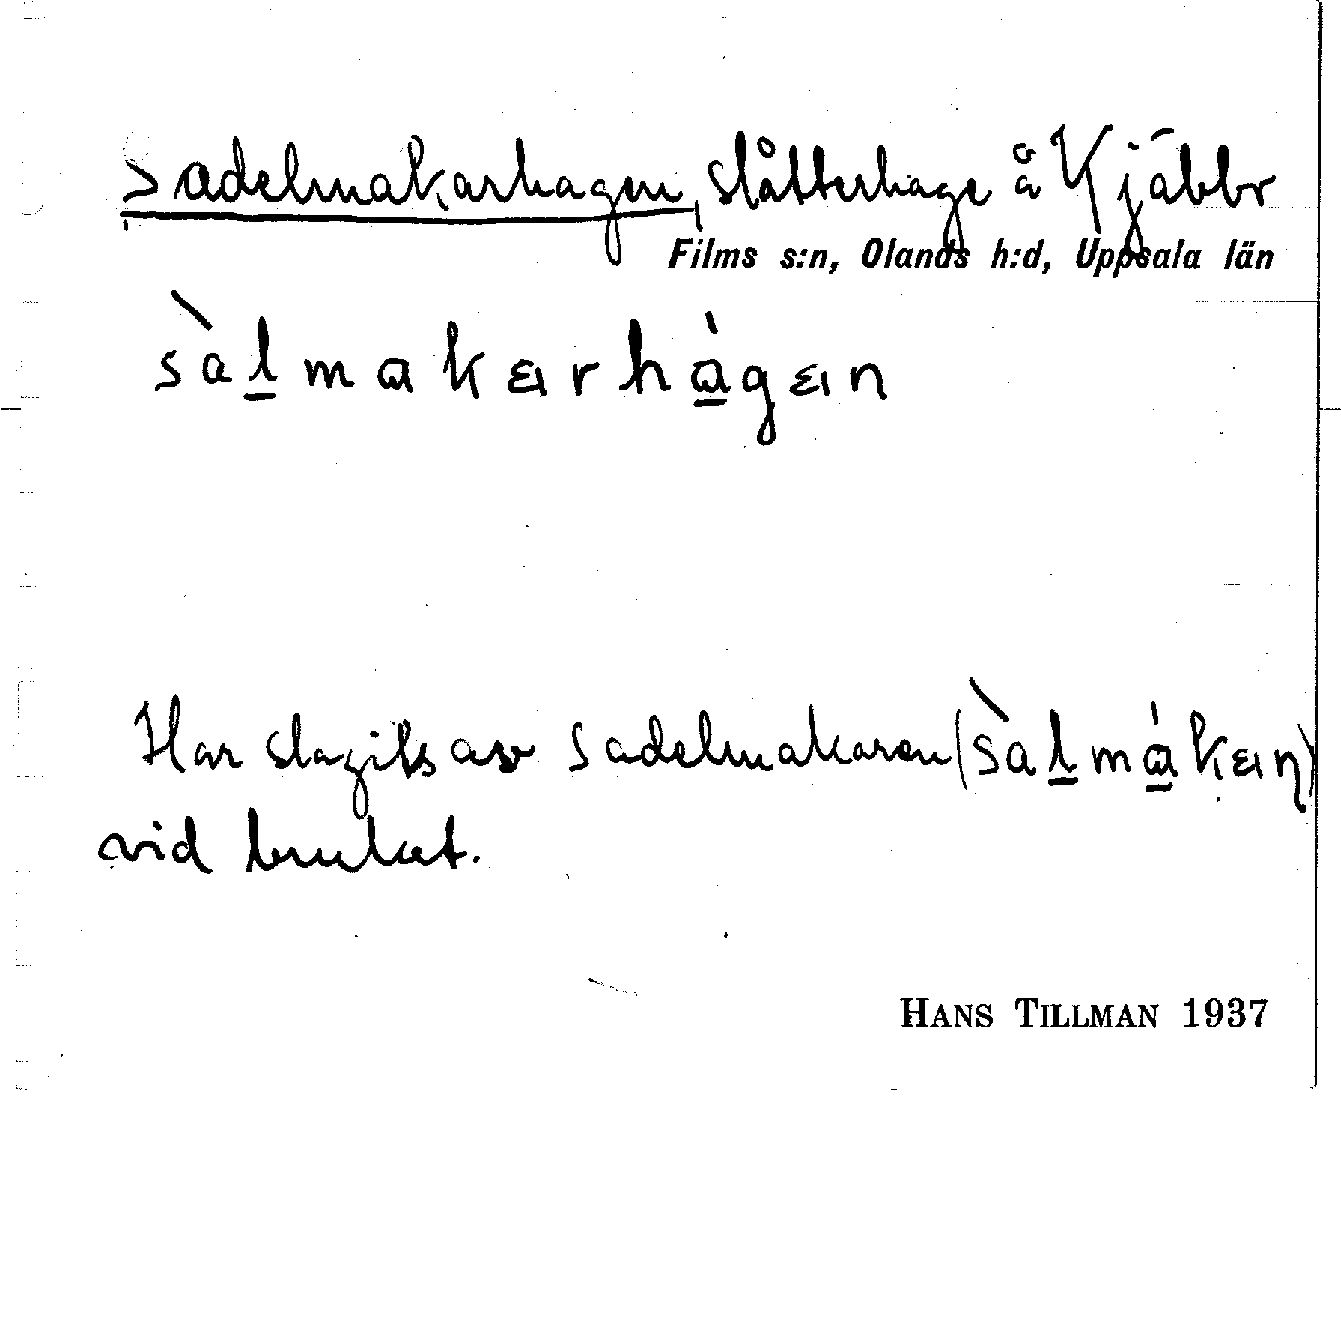 Sadelmakarhagen, slåtterhage å Kjäbbr
Films s:n, Olands h:d, Uppsala län
sàlmakerhágen
Har slagits av sadelmakaren (sàlmáken)
vid bruket.
HANS TILLMAN 1937